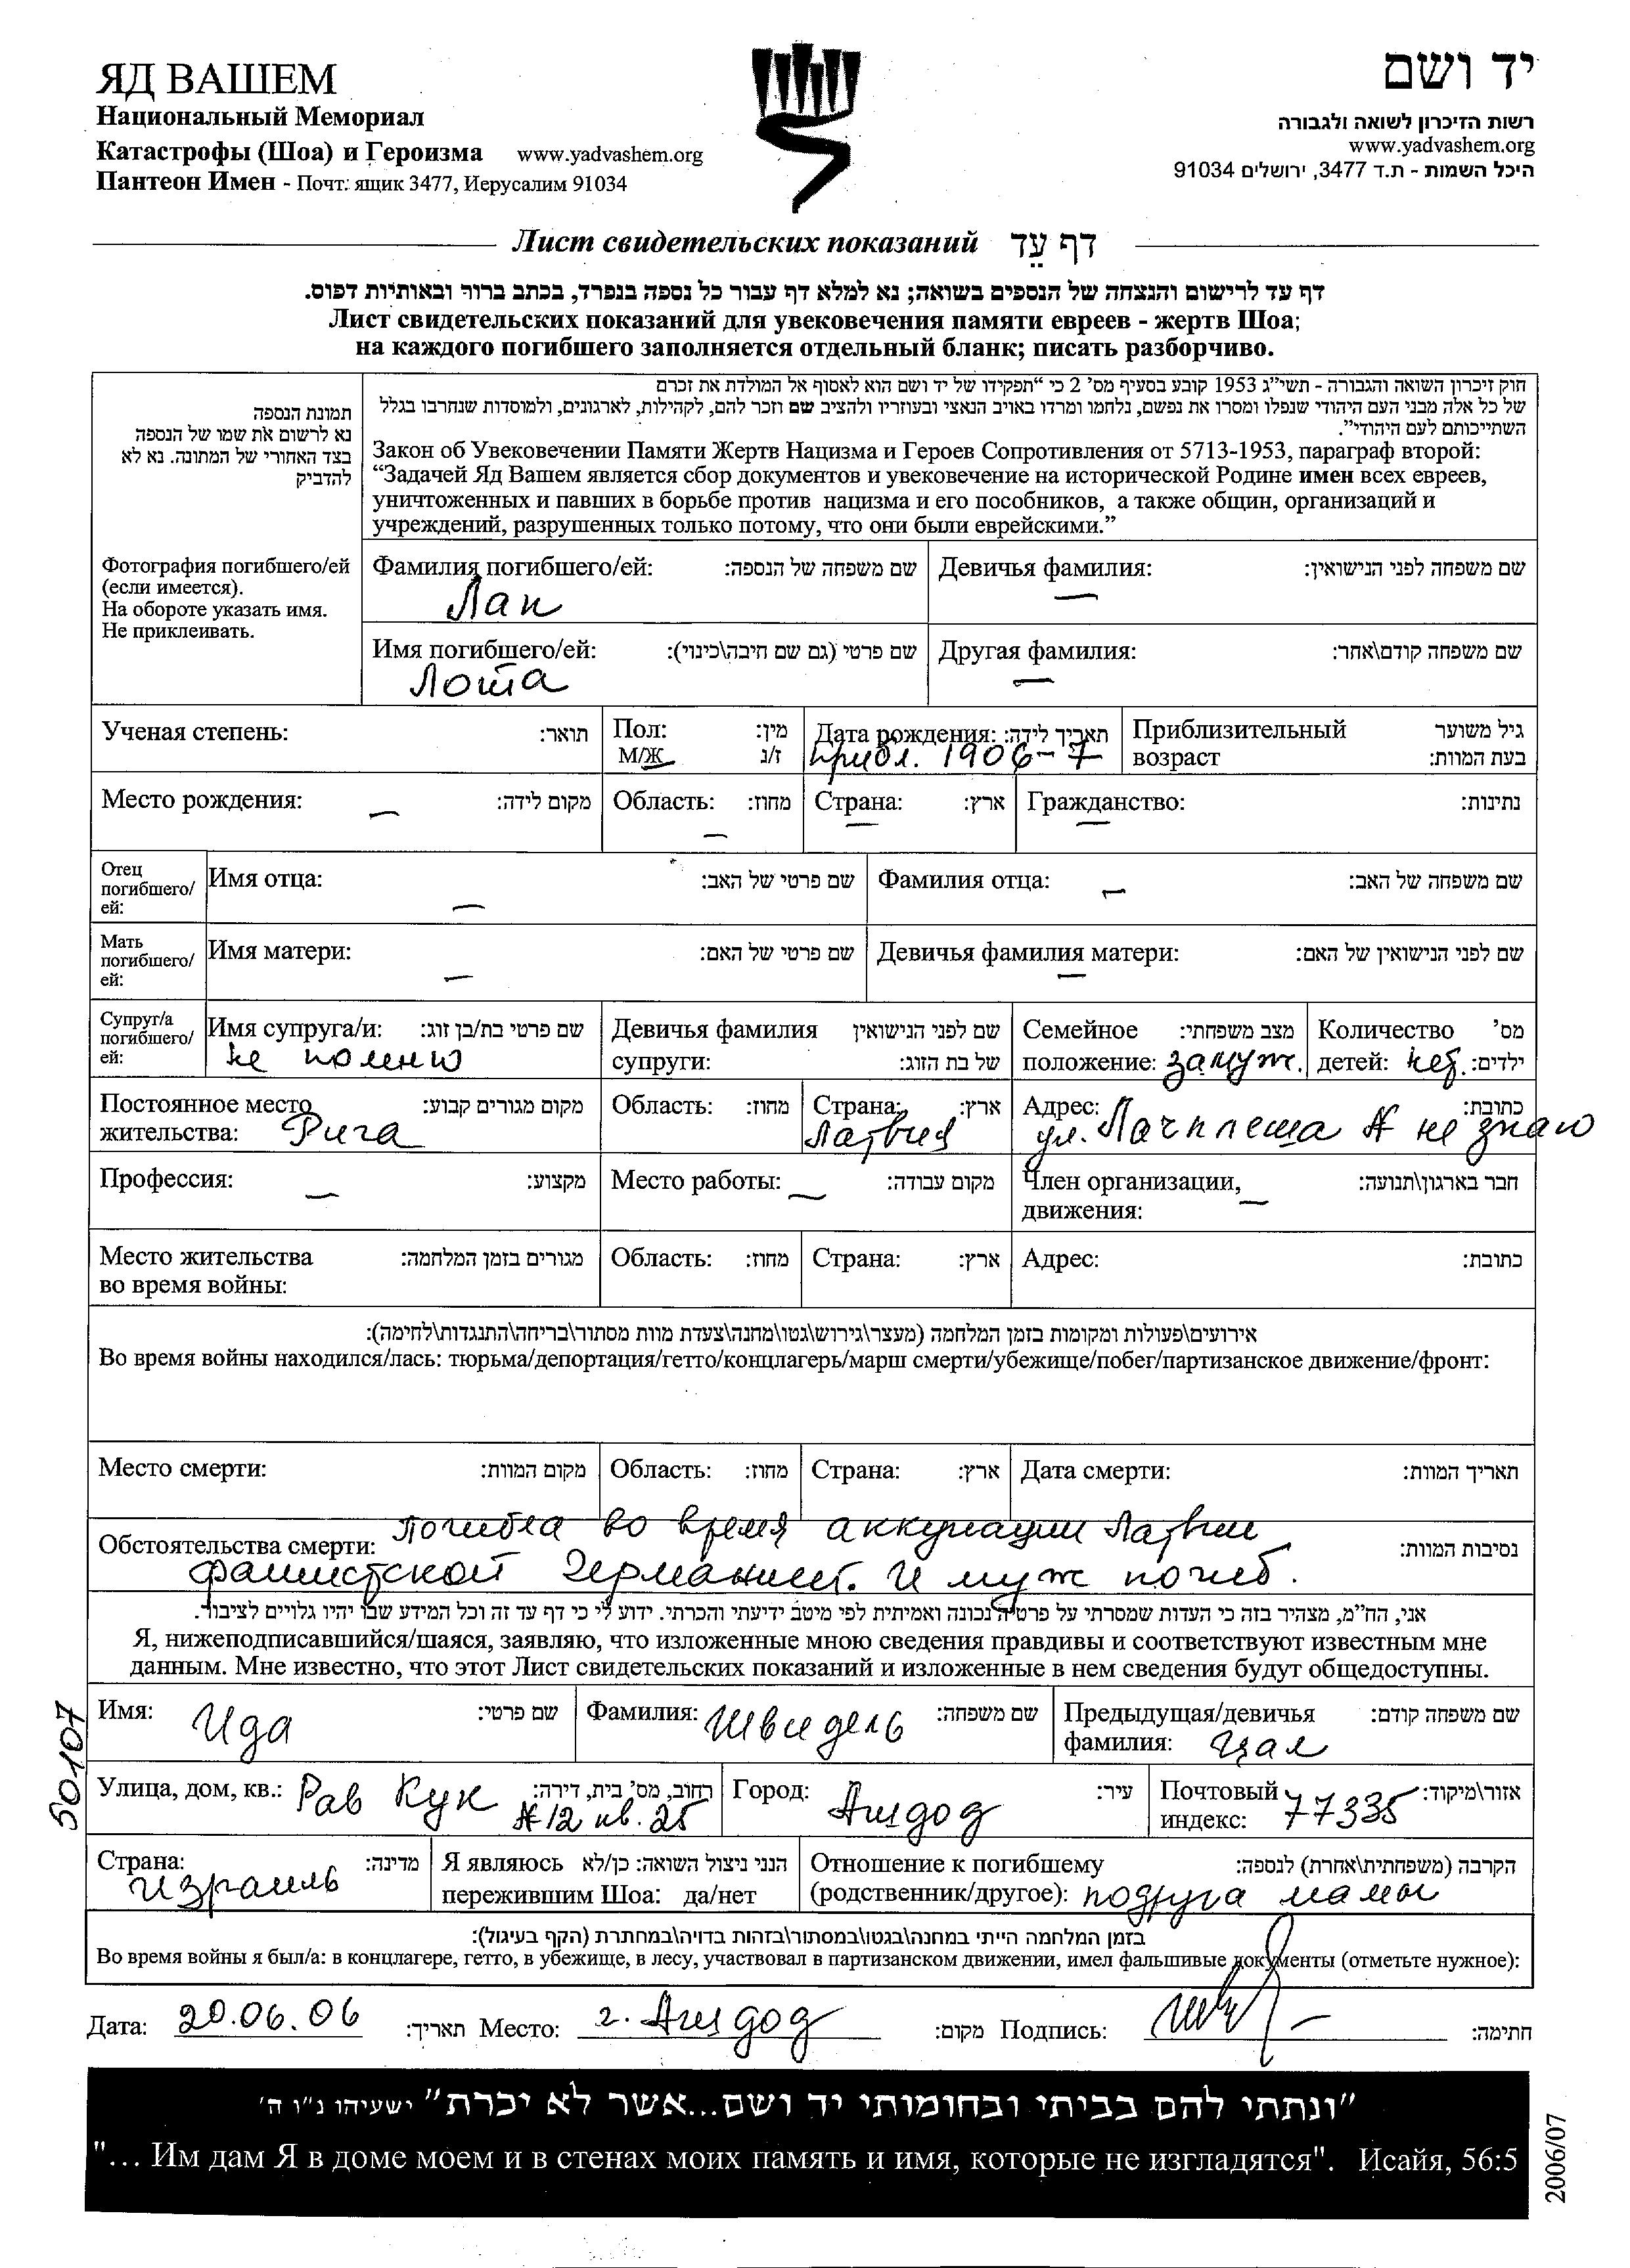 ЯД ВАШЕМ
Национальный Мемориал
Катастрофы (Шоа) и Героизма www.yadvashem.org
Пантеон Имен - Почт. ящик 3477, Иерусалим 91034
יד ושם
רשות הזיכרון לשואה ולגבורה
www.yadvashem.org
היכל השמות - ת.ד 3477, ירושלים 91034
Лист свидетельских показаний דף עֵד
דף עד לרישום והנצחה של הנספים בשואה; נא למלא דף עבור כל נספה בנפרד, בכתב ברור ובאותיות דפוס.
Лист свидетельских показаний для увековечения памяти евреев - жертв Шоа;
на каждого погибшего заполняется отдельный бланк; писать разборчиво.
תמונת הנספה
נא לרשום את שמו של הנספה
בצד האחורי של התמונה. נא לא
להדביק
Фотография погибшего/ей
(если имеется).
На обороте указать имя.
Не приклеивать.
חוק זיכרון השואה והגבורה - תשי"ג 1953 קובע בסעיף מס' 2 כי "תפקידו של יד ושם הוא לאסוף אל המולדת את זכרם
של כל אלה מבני העם היהודי שנפלו ומסרו את נפשם, נלחמו ומרדו באויב הנאצי ובעוזריו ולהציב שם וזכר להם, לקהילות, לארגונים, ולמוסדות שנחרבו בגלל
השתייכותם לעם היהודי".
Закон об Увековечении Памяти Жертв Нацизма и Героев Сопротивления от 5713-1953, параграф второй:
"Задачей Яд Вашем является сбор документов и увековечение на исторической Родине имен всех евреев,
уничтоженных и павших в борьбе против нацизма и его пособников, а также общин, организаций и
учреждений, разрушенных только потому, что они были еврейскими."
Фамилия погибшего/ей: שם משפחה של הנספה:
Лак
Девичья фамилия: שם משפחה לפני הנישואין:
—
Имя погибшего/ей: שם פרטי (גם שם חיבה\כינוי):
Лота
Другая фамилия: שם משפחה קודם\אחר:
—
Ученая степень: תואר:
Пол: מין:
М/Ж ז/נ
Дата рождения: תאריך לידה:
прибл. 1906-7
Приблизительный גיל משוער
возраст בעת המוות:
Место рождения: — מקום לידה:
Область: מחוז:
—
Страна: ארץ:
—
Гражданство: נתינות:
—
Отец
погибшего/
ей:
Имя отца: שם פרטי של האב:
—
Фамилия отца: — שם משפחה של האב:
Мать
погибшего/
ей:
Имя матери: שם פרטי של האם:
—
Девичья фамилия матери: שם לפני הנישואין של האם:
—
Супруг/а
погибшего/
ей:
Имя супруга/и: שם פרטי בת/בן זוג:
не помню
Девичья фамилия שם לפני הנישואין
супруги: של בת הזוג:
Семейное מצב משפחתי:
положение: замуж.
Количество מס'
детей: нет. ילדים:
Постоянное место מקום מגורים קבוע:
жительства: Рига
Область: מחוז:
Страна: ארץ:
Латвия
Адрес: כתובת:
ул. Лачплеша № не знаю
Профессия: — מקצוע:
Место работы: — מקום עבודה:
Член организации, — חבר בארגון\תנועה:
движения:
Место жительства מגורים בזמן המלחמה:
во время войны:
Область: מחוז:
Страна: ארץ:
Адрес: כתובת:
אירועים\פעולות ומקומות בזמן המלחמה (מעצר\גירוש\גטו\מחנה\צעדת מוות מסתור\בריחה\התנגדות\לחימה):
Во время войны находился/лась: тюрьма/депортация/гетто/концлагерь/марш смерти/убежище/побег/партизанское движение/фронт:
Место смерти: מקום המוות:
Область: מחוז:
Страна: ארץ:
Дата смерти: תאריך המוות:
Обстоятельства смерти: погибла во время аккупации Латвии נסיבות המוות:
фашистской Германией. И муж погиб.
אני, הח"מ, מצהיר בזה כי העדות שמסרתי על פרטיה נכונה ואמיתית לפי מיטב ידיעתי והכרתי. ידוע לי כי דף עד זה וכל המידע שבו יהיו גלויים לציבור.
Я, нижеподписавшийся/шаяся, заявляю, что изложенные мною сведения правдивы и соответствуют известным мне
данным. Мне известно, что этот Лист свидетельских показаний и изложенные в нем сведения будут общедоступны.
Имя: Ида שם פרטי:
Фамилия: Швидель שם משפחה:
Предыдущая/девичья שם משפחה קודם:
фамилия: Цал
Улица, дом, кв.: Рав Кук רחוב, מס' בית, דירה:
№12 кв. 25
Город: Ашдод עיר:
Почтовый אזור\מיקוד:
индекс: 77335
Страна: מדינה:
Израиль
Я являюсь הנני ניצול השואה: כן/לא
пережившим Шоа: да/нет
Отношение к погибшему הקרבה (משפחתית\אחרת) לנספה:
(родственник/другое): подруга мамы
בזמן המלחמה הייתי במחנה\בגטו\במסתור\בזהות בדויה\במחתרת (הקף בעיגול):
Во время войны я был/а: в концлагере, гетто, в убежище, в лесу, участвовал в партизанском движении, имел фальшивые документы (отметьте нужное):
Дата: 20.06.06 תאריך: Место: г. Ашдод מקום: Подпись: חתימה:
"ונתתי להם בביתי ובחומותי יד ושם...אשר לא יכרת" ישעיהו נ"ו ה'
"... Им дам Я в доме моем и в стенах моих память и имя, которые не изгладятся". Исайя, 56:5
50107
2006/07